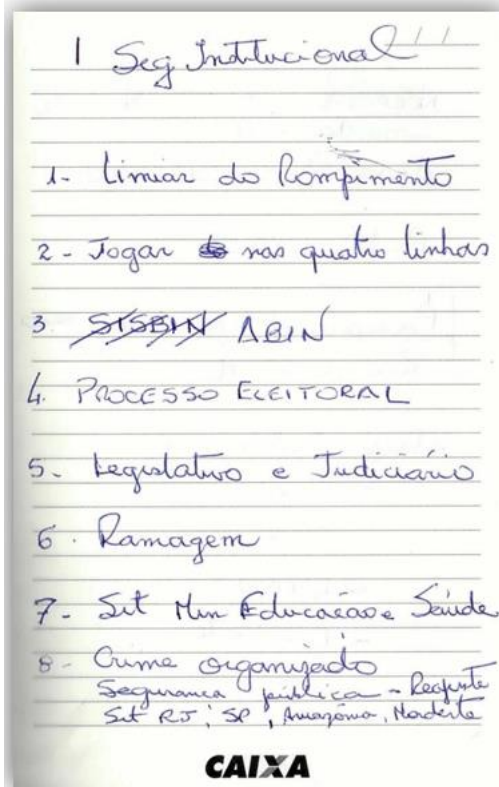 1 Seg Institucional / /
1- Limiar do Rompimento
2- Jogar nas quatro linhas
3. SISBIN ABIN
4. PROCESSO ELEITORAL
5- Legislativo e Judiciário
6. Ramagem
7- Sit Min Educação e Saúde
8- Crime organizado
Segurança pública - Reajuste
Sit RJ, SP, Amazônia, Nordeste
CAIXA